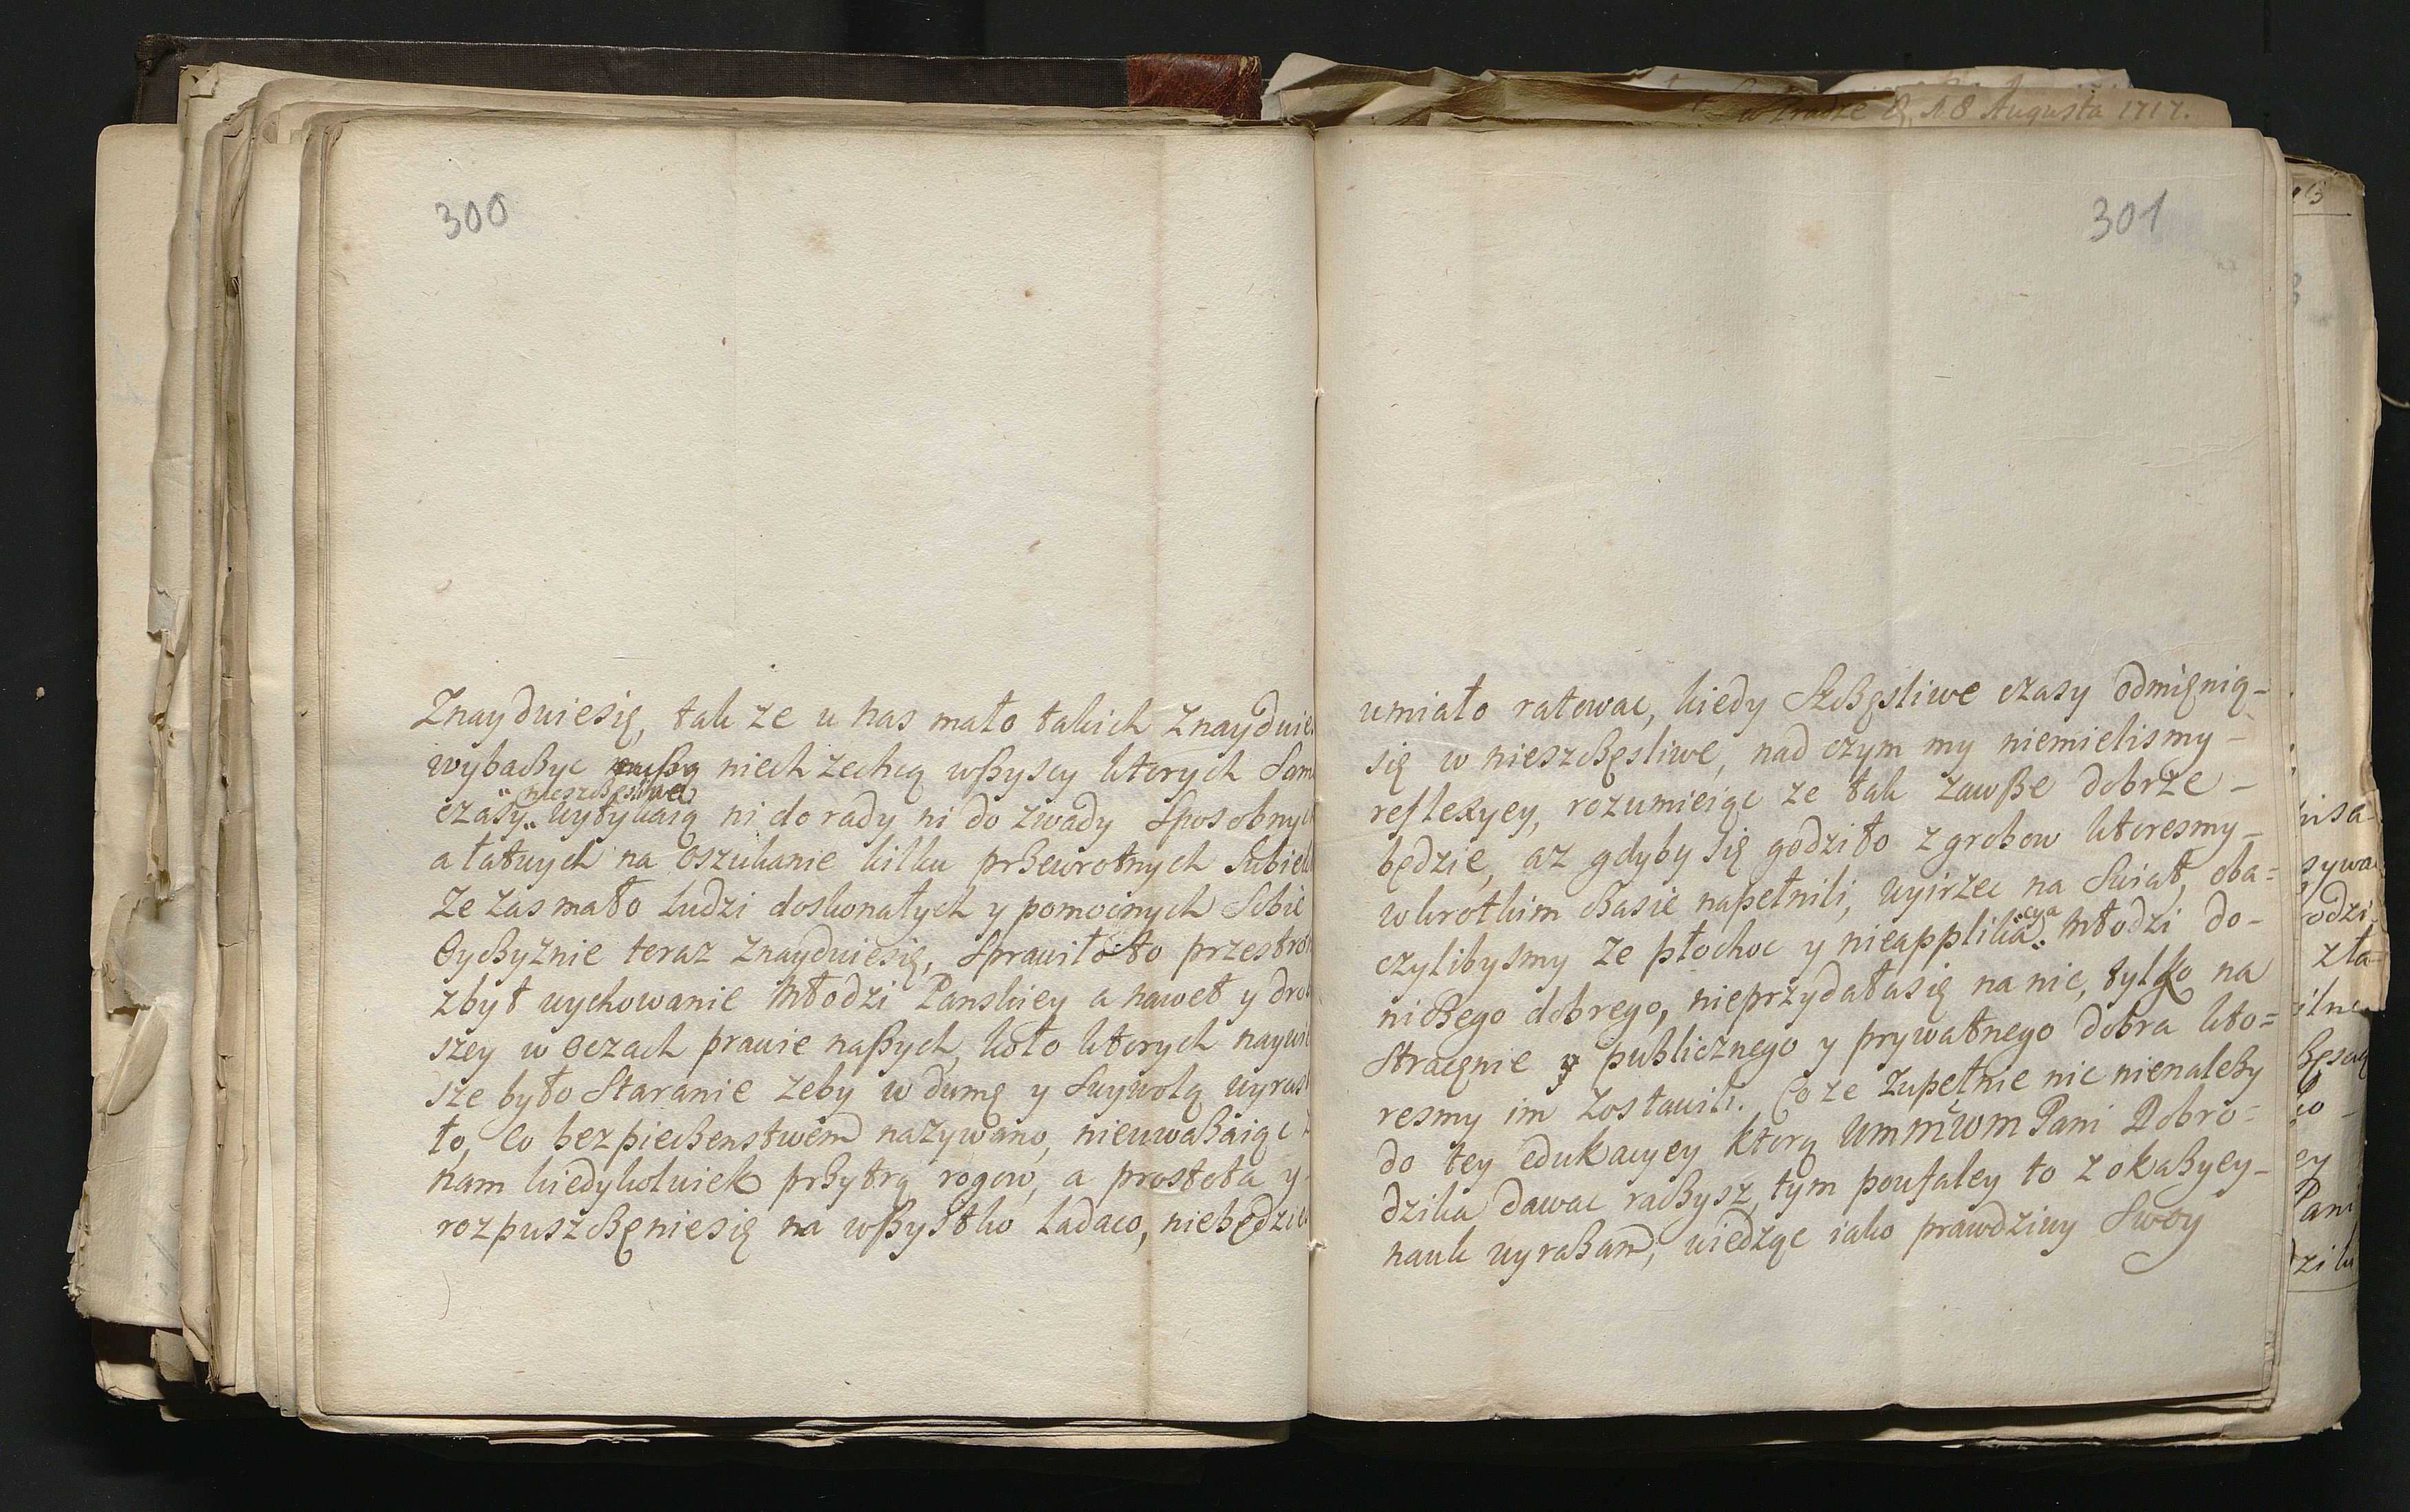 300
Znayduiesię, tak ze u nas mało takich znayduie
wybaßyc niech zechcą wßyscy ktorych Sam
nieszczęsliwe
czasy wytykaią ni do rady ni do zwady Sposobny
a łatwych na oszukanie kilku przewrotnych
Ze zas mało ludzi doskonałych y pomocnych Sobie
Oyczyznie teraz znayduiesię, Sprawiło to
zbyt wychowanie Młodzi Panskiey a nawet y
szey w oczach prawie naßych, koło ktorych
sze było Staranie zeby w dumę y Swywolą
to, co bezpieczenstwem nazywano, nieuwazaiąc
nam kiedykolwiek przytrą rogow, a prostota y
rozpuszczęniesię na wßystko ladaco, niebędzie
301
w Fradze D. 18 Augusta 1717.
umiało ratowac, kiedy Szczęsliwe czasy odmięnią-
się w nieszczęsliwe, nad czym my niemielismy-
reflexyey, rozumieiąc ze tak zawße dobrze-
będzie, az gdyby się godziło z grobow ktoresmy-
w krotkim czasie napełnili, wyirzec na Swiat, oba=
czylibysmy ze płochoc y nieapplikacya Młodzi do-
niczego dobrego, nieprzydałasię na nic, tylko na
Stracęnie publicznego y prywatnego dobra kto=
resmy im zostawili. Co ze zupełnie nic nienalezy
do tey edukacyey ktorą WMMWM Pani Dobro=
dzika dawac raczysz, tym poufaley to z okazyey-
nauk wyrazam, wiedząc iako prawdziwy Swoy